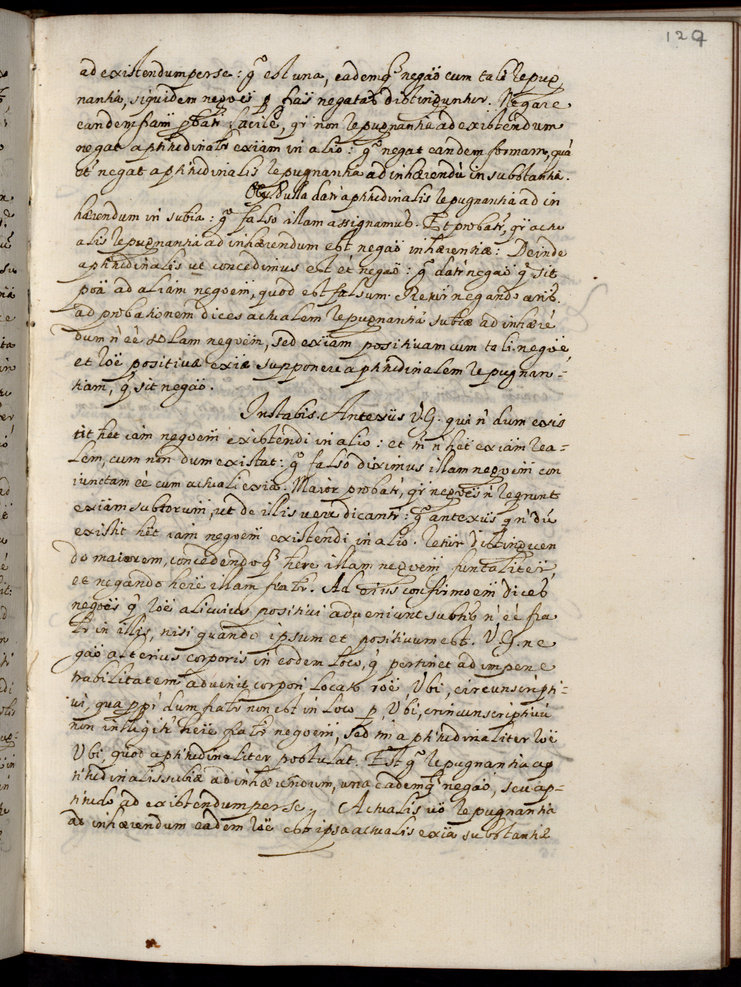 129
ad existendum per se: q̃ est una, eademq̃ negaõ cum tali repug
nantia, siquidem negoẽs p̱ frãs negatas distinguntur. Negare
eandem frãm pbatr̃ facile, qr̃ non repugnantia ad existendum
negat aptitudinalẽ exiam in alio: q̃ negat eandem formam, quã
et negat aptitudinalis repugnantia ad inhærendũ in substantia.
Obj. Nulla datr̃ aptitudinalis repugnantia ad in
hærendum in subia: q̃ falso illam assignamus. Et probatr̃, qr̃ actu
alis repugnantia ad inhærendum est negaõ inhærentiæ: Deinde
aptitudinalis ut concedimus est et negaõ: q̃ datr̃ negaõ q̃ sit
poã ad aliam negoẽm, quod est falsum. Retur̃ negando
ad probationem dices actualem repugnantiã subiæ ad inhærẽ
dum ñ eẽ solam negoẽm, sed exiam positivam cum tali negoẽ
et roẽ positivæ exiæ supponere aptitudinalem repugnan-
tiam, q̃ sit negaõ.
Instabis. Antexũs V.G. qui ñ dum exis
tit het iam negoẽm existendi in alio: et tñ ñ het exiam rea-
lem, cum non dum existat: q̃ falso diximus illam negoẽm con
iunctam eẽ cum actuali exia. Maior probatr̃, qr̃ negoẽs ñ reqrunt
exiam subtorum, ut de illis vere dicantr̃: q̃ antexũs q ñ dũ
existit het iam negoẽm existendi in alio. Retur̃ distinguen
do maiorem, concedendoq̃ here illam negoẽm funtaliter
et negando here illam fratr̃. Ad confirmoẽm dices
negoẽs q̃ roẽ alicuius positivi adveniunt subtis ñ eẽ fra
tr̃ in illis, nisi quando ipsum et positivum est. V.G. ne
gaõ alterius corporis in eodem loco, q̃ pertinet ad impene
trabilitatem advenit corpori locato roẽ Ubi, circunscripti-
vi, qua ppr̃ dum fratr̃ non est in loco p̱ Ubi, circunscriptivũ
non intligitr̃ here fratr̃ negoẽm, sed tñ aptitudinaliter roẽ
Ubi quod aptitudinaliter postulat. Est q̃ repugnantia ap
titudinalis subiæ ad inhærendum, una eademq̃ negaõ, seu ap-
titudo ad existendum per se. Actualis vo repugnantia
ad inhærendum eadem roẽ est ipsa actualis exia substantiæ